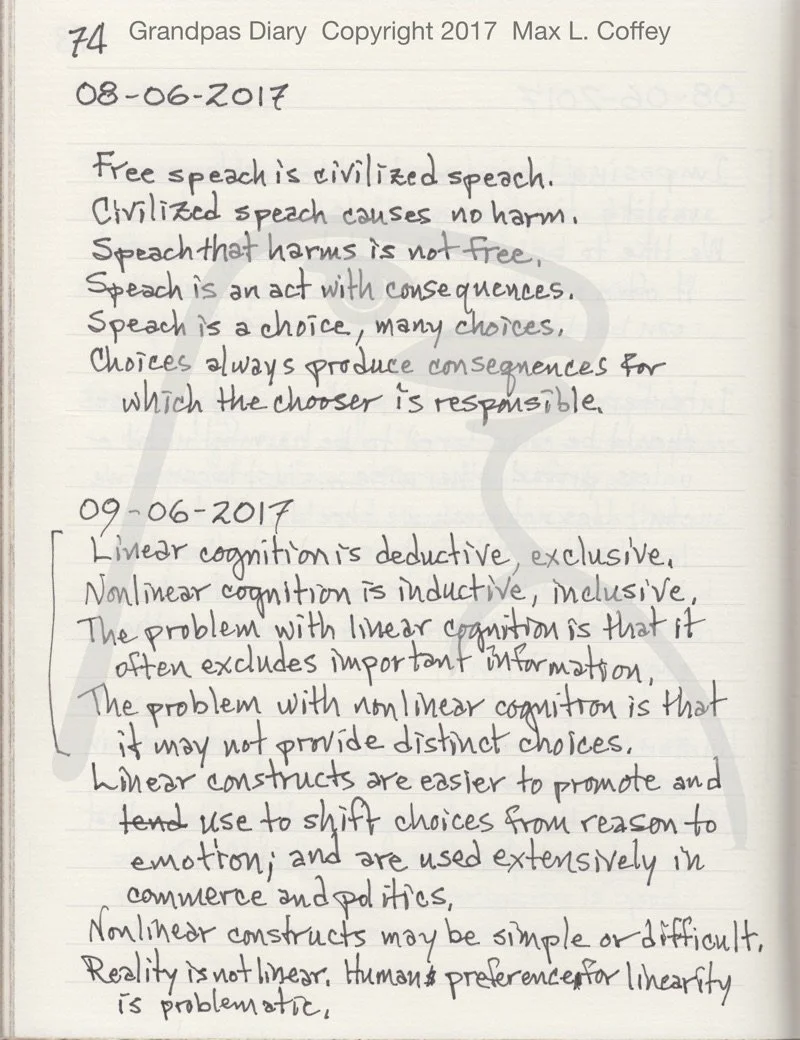 74 Grandpas Diary Copyright 2017 Max L. Coffey
08-06-2017
Free speach is civilized speach.
Civilized speach causes no harm.
Speach that harms is not free.
Speach is an act with consequences.
Speach is a choice, many choices.
Choices always produce consequences for
which the chooser is responsible.
09-06-2017
Linear cognition is deductive, exclusive.
Nonlinear cognition is inductive, inclusive.
The problem with linear cognition is that it
often excludes important information.
The problem with nonlinear cognition is that
it may not provide distinct choices.
Linear constructs are easier to promote and
tend use to shift choices from reason to
emotion; and are used extensively in
commerce and politics.
Nonlinear constructs may be simple or difficult.
Reality is not linear. Humans preference for linearity
is problematic.